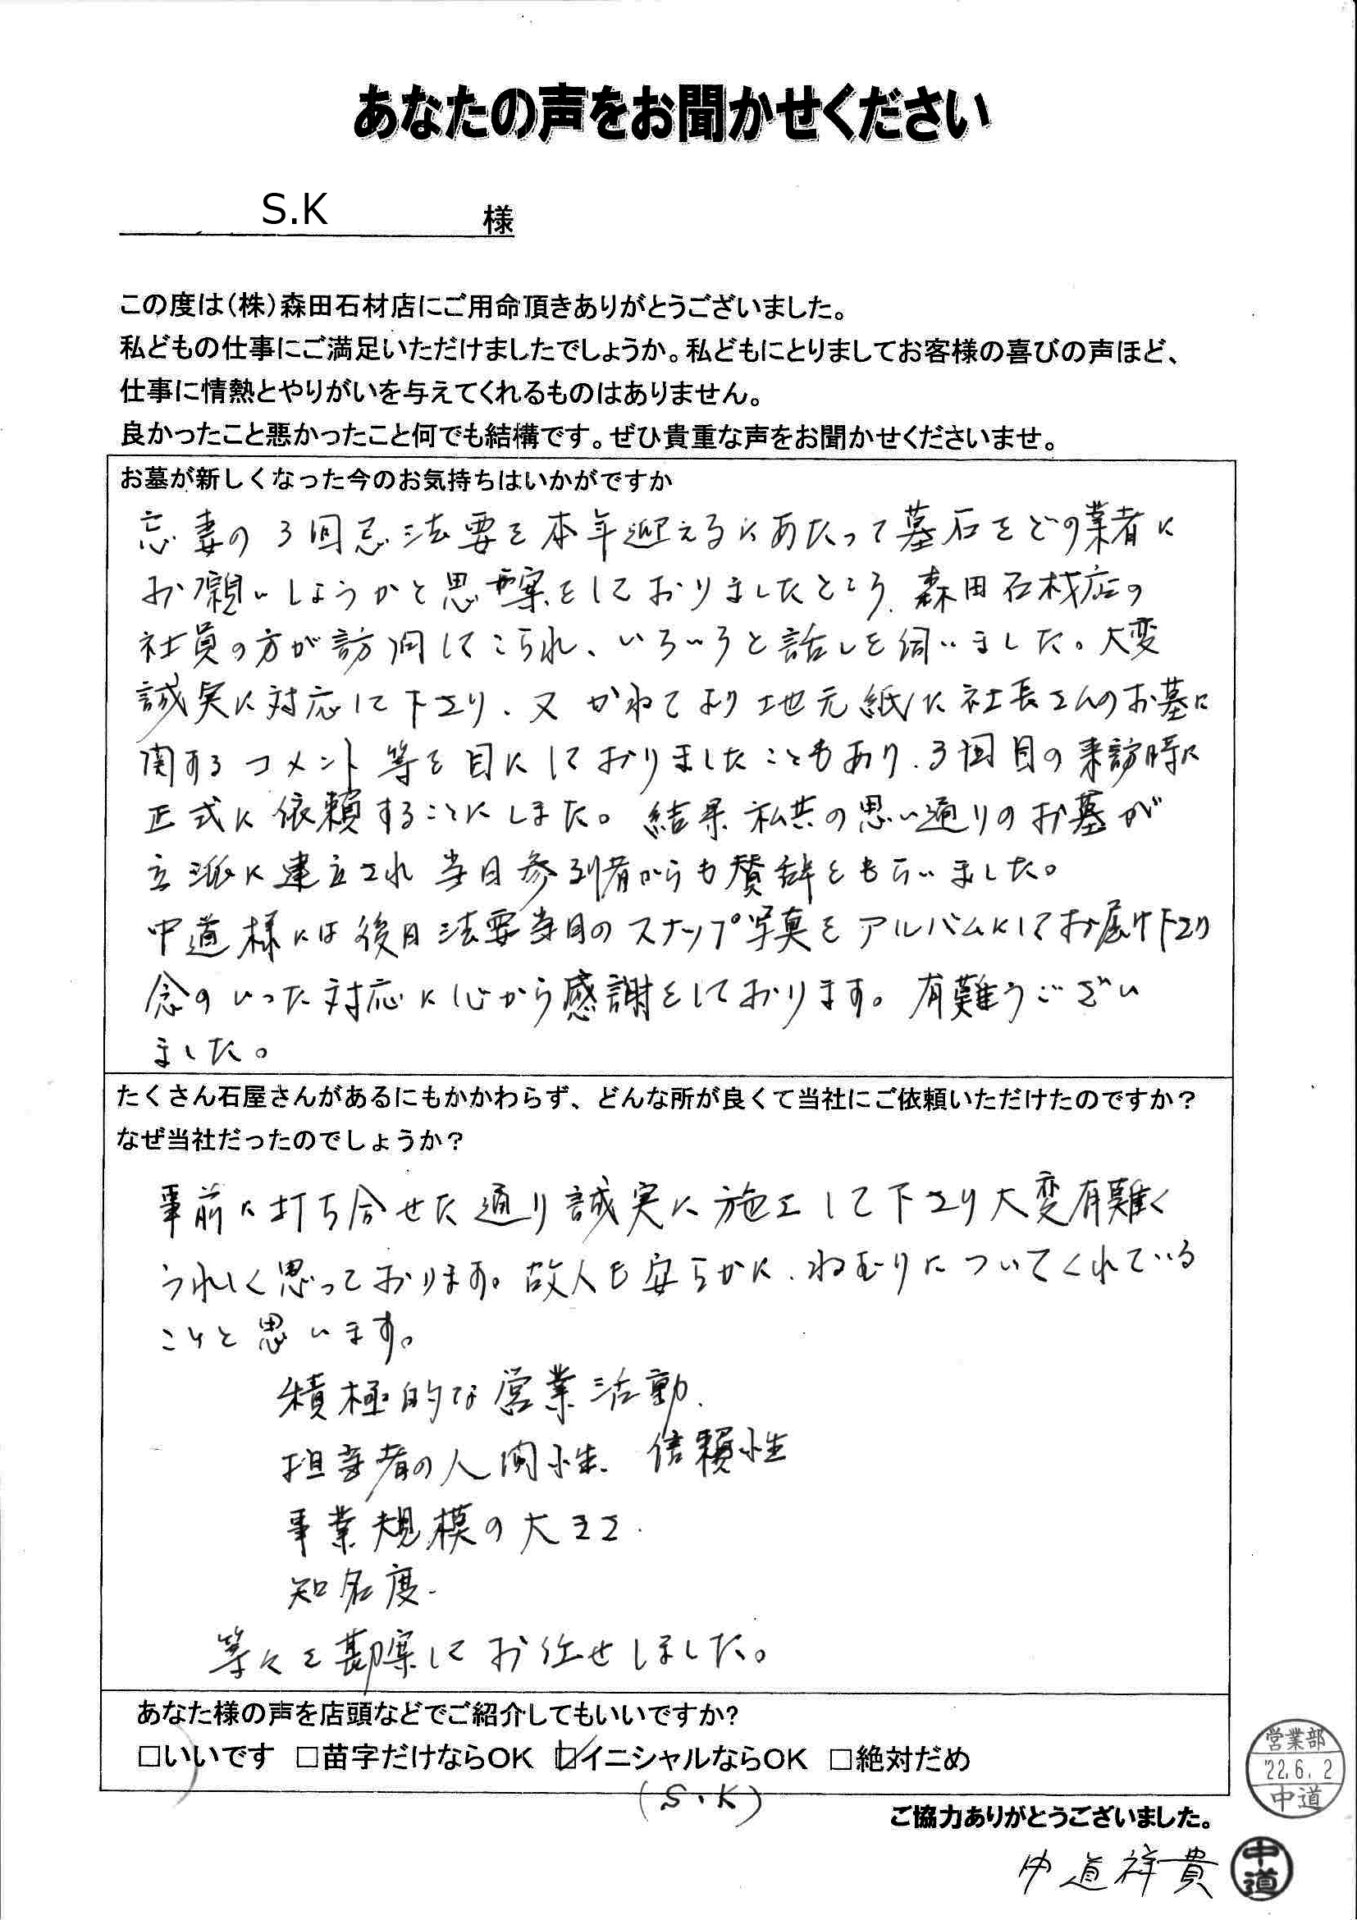 あなたの声をお聞かせください
S.K 様
この度は(株)森田石材店にご用命頂きありがとうございました。
私どもの仕事にご満足いただけましたでしょうか。私どもにとりましてお客様の喜びの声ほど、
仕事に情熱とやりがいを与えてくれるものはありません。
良かったこと悪かったこと何でも結構です。ぜひ貴重な声をお聞かせくださいませ。
お墓が新しくなった今のお気持ちはいかがですか
忘妻の3回忌法要を本年迎えるにあたって墓石をどの業者に
お願いしようかと思案をしておりましたところ、森田石材店の
社員の方が訪問してこられ、いろいろと話しを伺いました。大変
誠実に対応して下さり、又かねてより地元紙に社長さんのお墓に
関するコメント等を目にしておりましたこともあり、3回目の来訪時に
正式に依頼することにしました。結果私共の思い通りのお墓が
立派に建立され当日参列者からも賛辞をもらいました。
中道様には後日法要当日のスナップ写真をアルバムにしてお届け下さり
念のいった対応に心から感謝をしております。有難うござい
ました。
たくさん石屋さんがあるにもかかわらず、どんな所が良くて当社にご依頼いただけたのですか?
なぜ当社だったのでしょうか?
事前に打ち合せた通り誠実に施工して下さり大変有難く
うれしく思っております。故人も安らかに、ねむりについてくれている
ことと思います。
積極的な営業活動、
担当者の人間性、信頼性
事業規模の大きさ.
知名度.
等々を勘案してお任せしました。
あなた様の声を店頭などでご紹介してもいいですか?
□いいです □苗字だけならOK ☑イニシャルならOK □絶対だめ
(S.K)
ご協力ありがとうございました。
営業部
'22.6.2
中道
中道祥貴
中道